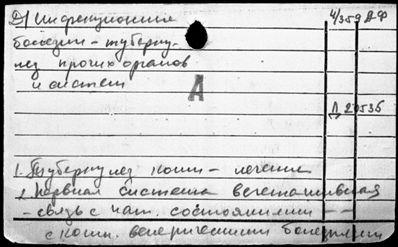 2) Инфекционные
болезни - туберку-
лез прочих органов
и систем
4/359 ДФ
А
Д 20535
1. Туберкулез кожи - лечение
2. Нервная система вегетативная
- связь с пат. состояниями - -
с кожн. венерическими болезнями